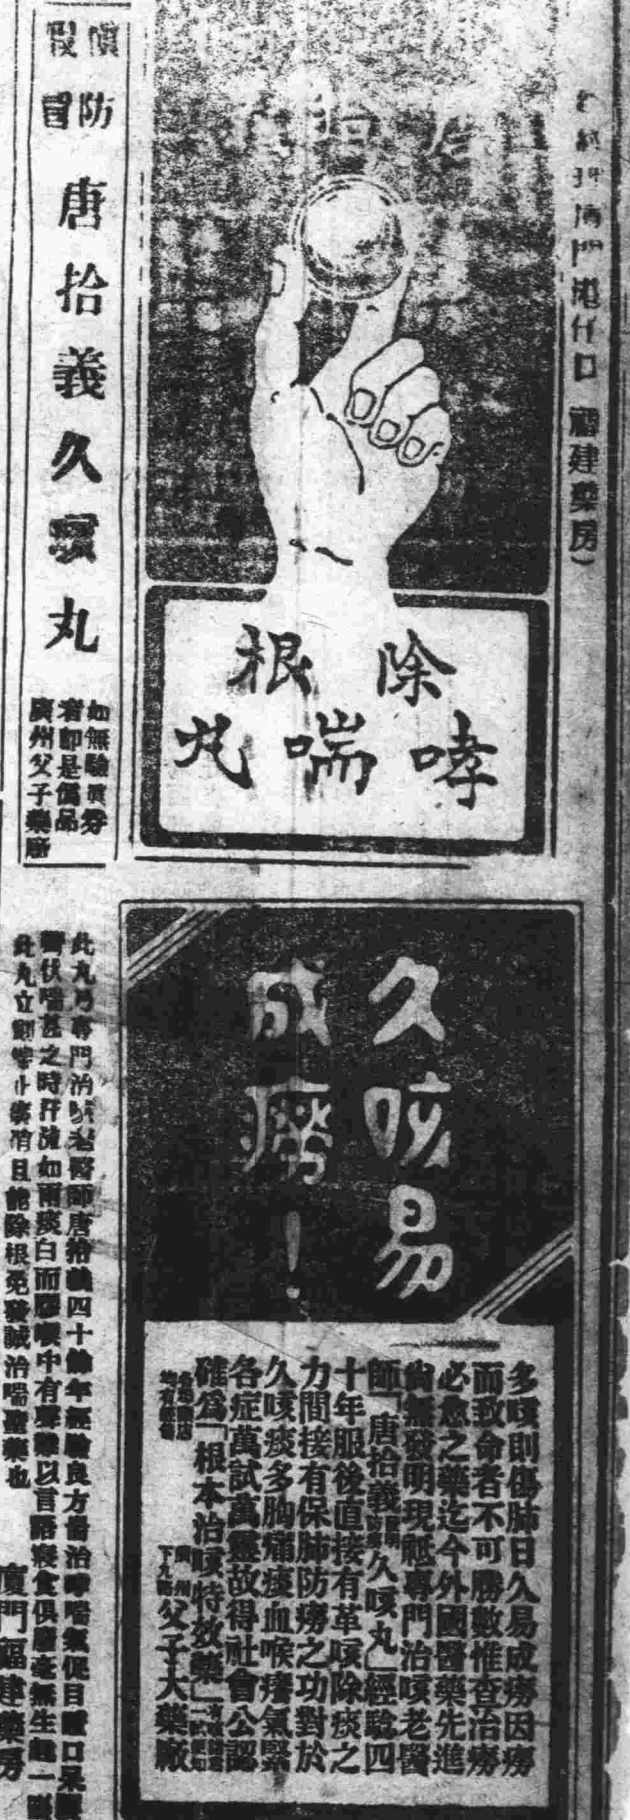 港仔口 福建藥房）
除根
哮喘丸
防
冒
唐拾義久咳丸
如無驗眞券
者即是偽品
廣州父子藥廠
久咳易
成癆！
多咳則傷肺日久易成癆因癆
而致命者不可勝數惟查治癆
必愈之藥迄今外國醫藥先進
尙無發明現祗專門治咳老醫
師「唐拾義久咳丸」經驗四
十年服後直接有革咳除痰之
力間接有保肺防癆之功對於
久咳痰多胸痛痰血喉癢氣緊
各症萬試萬靈故得社會公認
確爲「根本治咳特效藥」
父子大藥廠
此丸乃專門治咳老醫師唐拾義四十餘年經驗良方善治哮喘氣促目口呆
伏喘甚之時汗流如雨痰白而膠喉中有聲難以言語寢食俱廢毫無生趣一
此丸立刻且能除根免發誠治喘聖藥也
廈門福建藥房